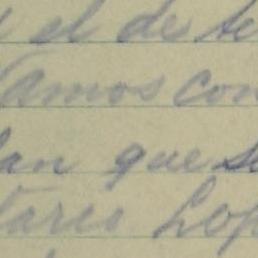 el de te
amos con
lan que s
tares Lop